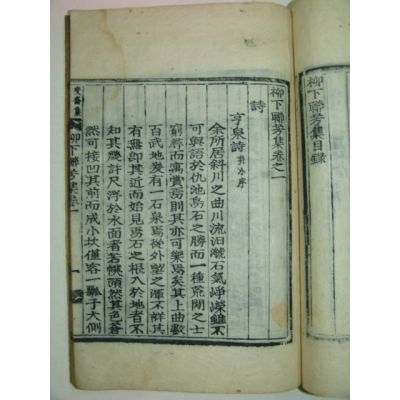 柳下聯芳集目錄
柳下聯芳集卷之一
詩
亨泉詩 幷小序
余所居斜川之曲川流汨石氣崢嶸雖不
可與語於仇池烏石之勝而一種荒閒之士
窮尋而寓賞焉則其亦可樂焉矣其上曲數
百武地爰有一石焉從外望之渾不詳其
有無卽其近而始見焉石之根入於地者不
知其幾許尺浮於水面者若幞頭然其色蒼
然可接凹其前而成小坎僅容一瓢子大側
柳下聯芳集卷一
一